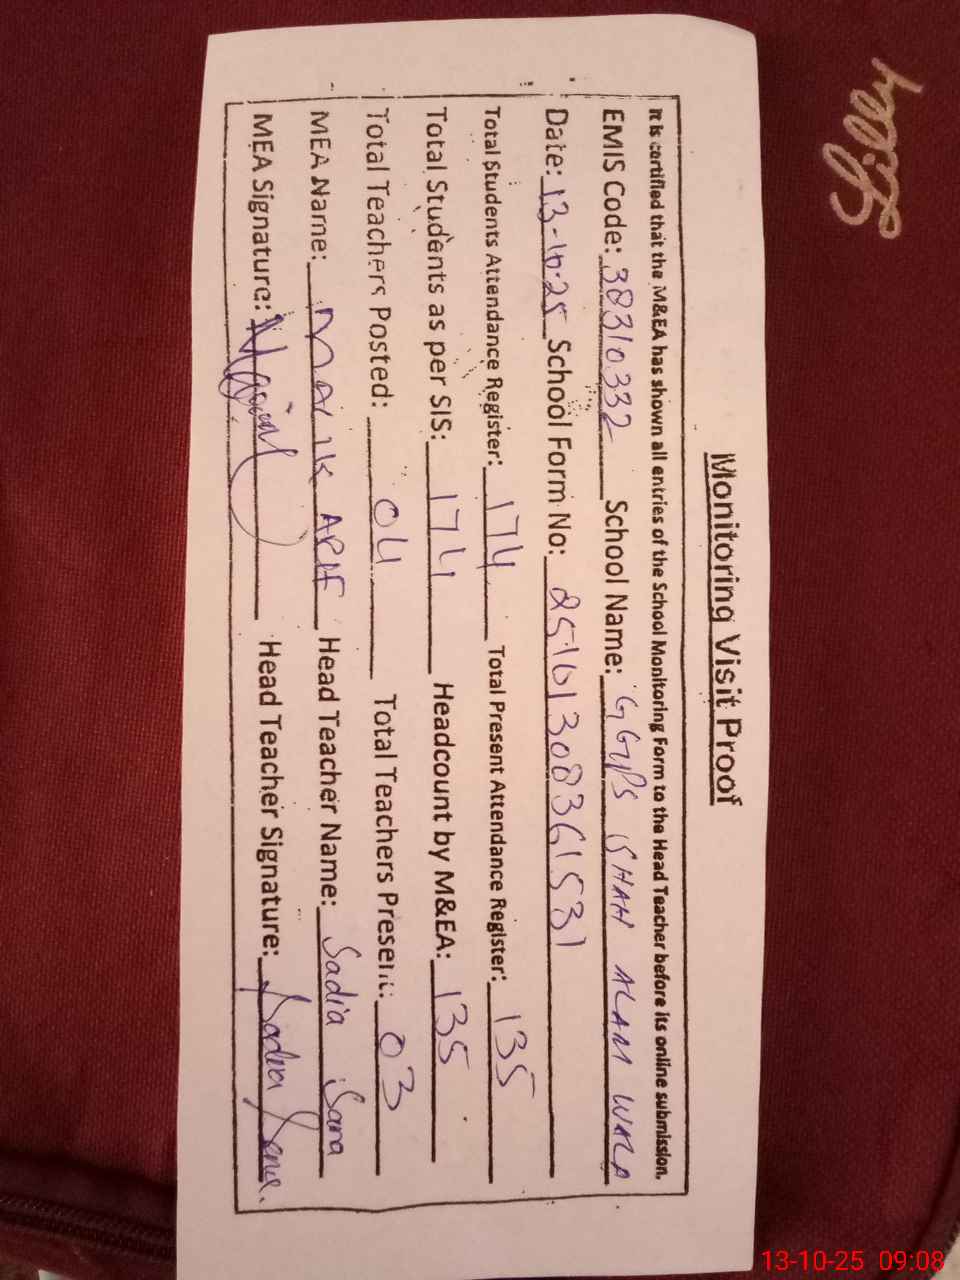 Monitoring Visit Proof
It is certified that the M&EA has shown all entries of the School Monitoring Form to the Head Teacher before its online submission.
EMIS Code: 38310332 School Name: GGPS SHAH ALAM WALA
Date: 13-10-25 School Form No: 25101308361531
Total Students Attendance Register: 174 Total Present Attendance Register: 135
Total Students as per SIS: 174 Headcount by M&EA: 135
Total Teachers Posted: 04 Total Teachers Present: 03
MEA Name: MALIK ARIF Head Teacher Name: Sadia Sana
MEA Signature: Head Teacher Signature: Sadia Sana.
13-10-25 09:08